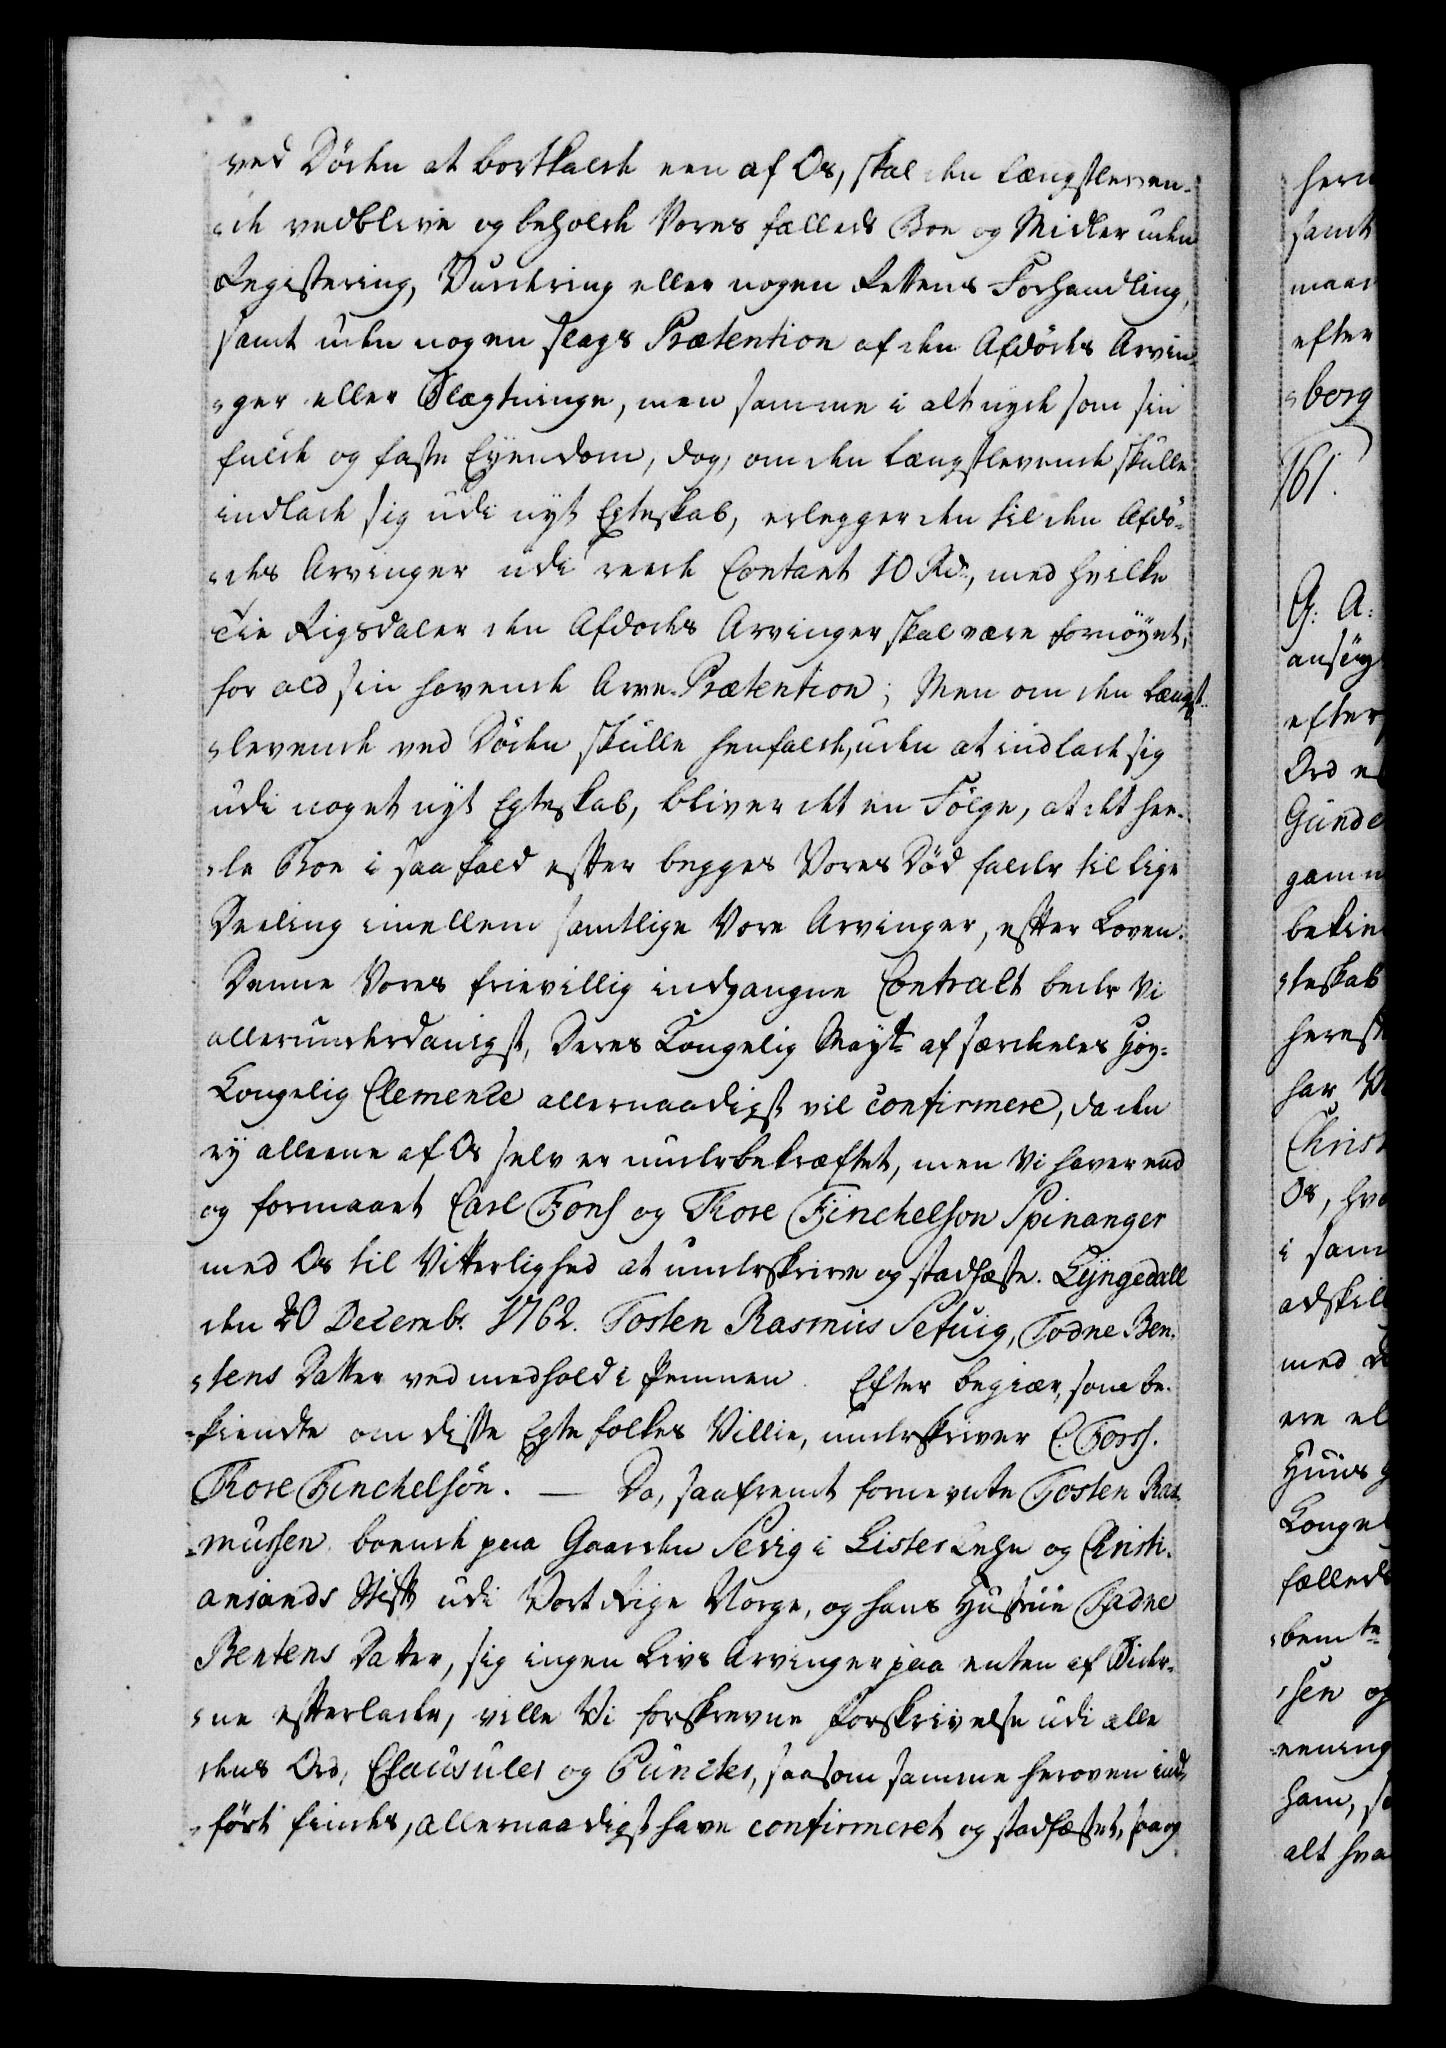 ved Döden at bortkalde een af Os, skal den Længstleven-
de vedblive og beholde Vores fælleds Boe og Midler uden
Registering, Vurdering eller nogen Rettens Forhandling,
samt uden nogen slags Prætention af den Afdödes Arvin-
ger eller Slægtninge, men samme i alt nyde som sin
fulde og faste Eyendom, dog, om den Længstlevende skulle
indlade sig udi nyt Egteskab, erlegger den til den Afdö-
des Arvinger udi reede Contant 10 Rdr, med hvilke
Tie Rigsdaler den Afdödes Arvinger skal være fornöyet,
for ald sin havende Arve-Prætention; Men om den Længst-
levende ved Döden skulle henfalde, uden at indlade sig
udi noget nyt Egteskab, bliver det en Fölge, at det hee-
le Boe i saa fald efter begges Vores Död falder til lige
Deeling imellem samtlige Vore Arvinger, efter Loven.
Denne Vores frievillig indgangne Contrakt beder Vi
allerunderdanigst, Deres Kongelig Mayt af særdeles Höy-
Kongelig Clemence allernaadigst vil confirmere, da den
ey alleene af Os selv er underbekræftet, men Vi haver end
og formaaet Carl Fons og Thore Finchelson Spinanger
med Os til Vitterlighed at underskrive og stadfæste. Lyngedall
den 20 Decembr. 1762. Tosten Rasmus Sefuig, Todne Ben-
tens Datter ved medhold i Pennen. Efter begiær, som be-
kiendte om disse Egtefolkes Villie, underskriver C. Fons.
Thore Finchelsön. — Da, saafremt fornevnte Tosten Ras-
mussen boende paa Gaarden Sevig i Lister Lehn og Christi-
ansands Stift udi Vort Rige Norge, og hans Hustrue Todne
Bentens Datter, sig ingen Livs Arvinger paa enten af Sider-
ne efterlader, ville Vi forskrevne Forskrivelse udi alle
dens Ord, Clausuler og Puncter, saasom samme heroven ind-
fört findes, allernaadigst have confirmeret og stadfæstet, saa og
samt
efter
borg
161.
G. A.
efter
hereft
har
Os, hvo
i sam
med
Huus
fælleds
bemte
sen og
ham,
alt hva